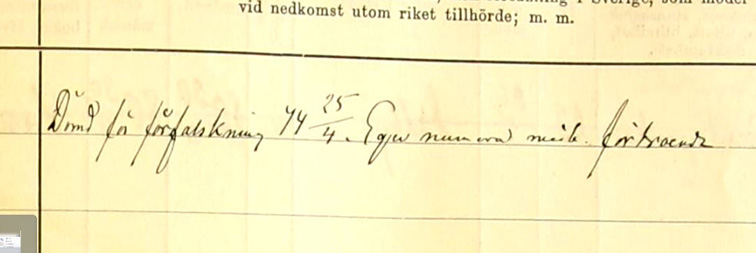 vid nedkomst utom riket tillhörde; m. m.
Dömd för förfalskning 44 25/4. Eger numera medb. förtroende